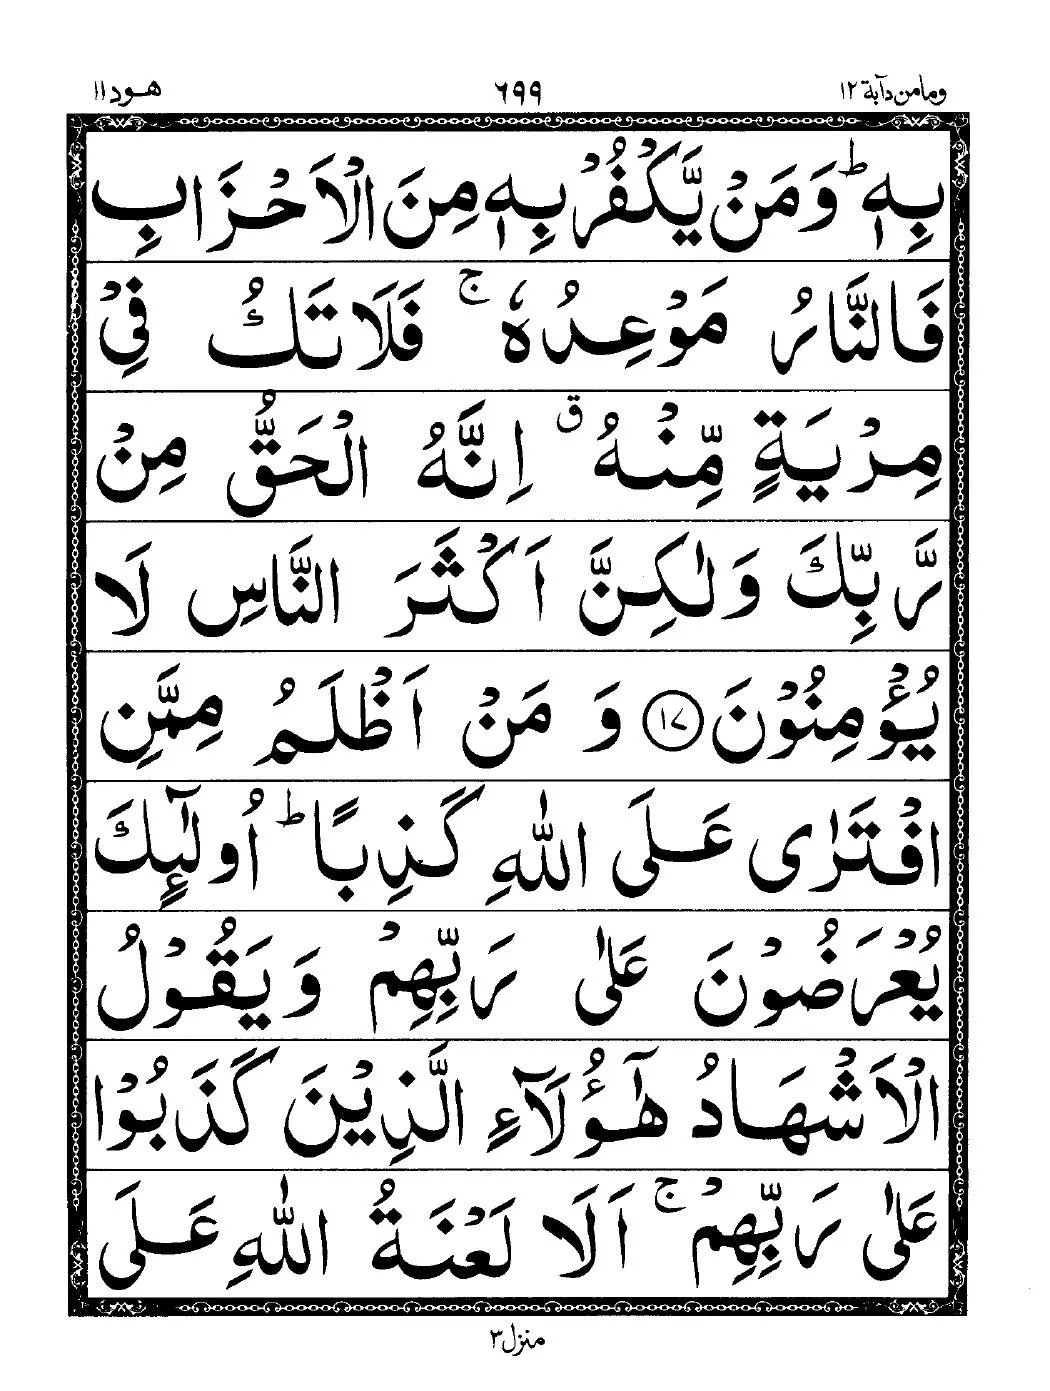 وما من دآبة ١٢
٦٩٩
هود ١١
بِهٖ ؕ وَمَنْ يَّكْفُرْ بِهٖ مِنَ الْاَحْزَابِ
فَالنَّارُ مَوْعِدُهٗ ۚ فَلَا تَكُ فِيْ
مِرْيَةٍ مِّنْهُ ۗ اِنَّهُ الْحَقُّ مِنْ
رَّبِّكَ وَلٰكِنَّ اَكْثَرَ النَّاسِ لَا
يُؤْمِنُوْنَ ﴿١٧﴾ وَ مَنْ اَظْلَمُ مِمَّنِ
افْتَرٰى عَلَى اللّٰهِ كَذِبًا ؕ اُولٰٓئِكَ
يُعْرَضُوْنَ عَلٰى رَبِّهِمْ وَيَقُوْلُ
الْاَشْهَادُ هٰٓؤُلَآءِ الَّذِيْنَ كَذَبُوْا
عَلٰى رَبِّهِمْ ۚ اَلَا لَعْنَةُ اللّٰهِ عَلَى
منزل ٣